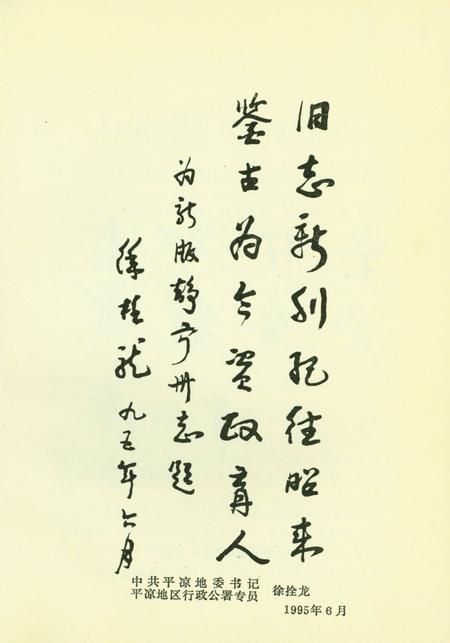 旧志新刊犯往昭来
鉴古为今资政育人
为新版静宁州志题
徐拴龙 九五年六月
中共平凉地委书记
平凉地区行政公署专员 徐拴龙
1995年6月